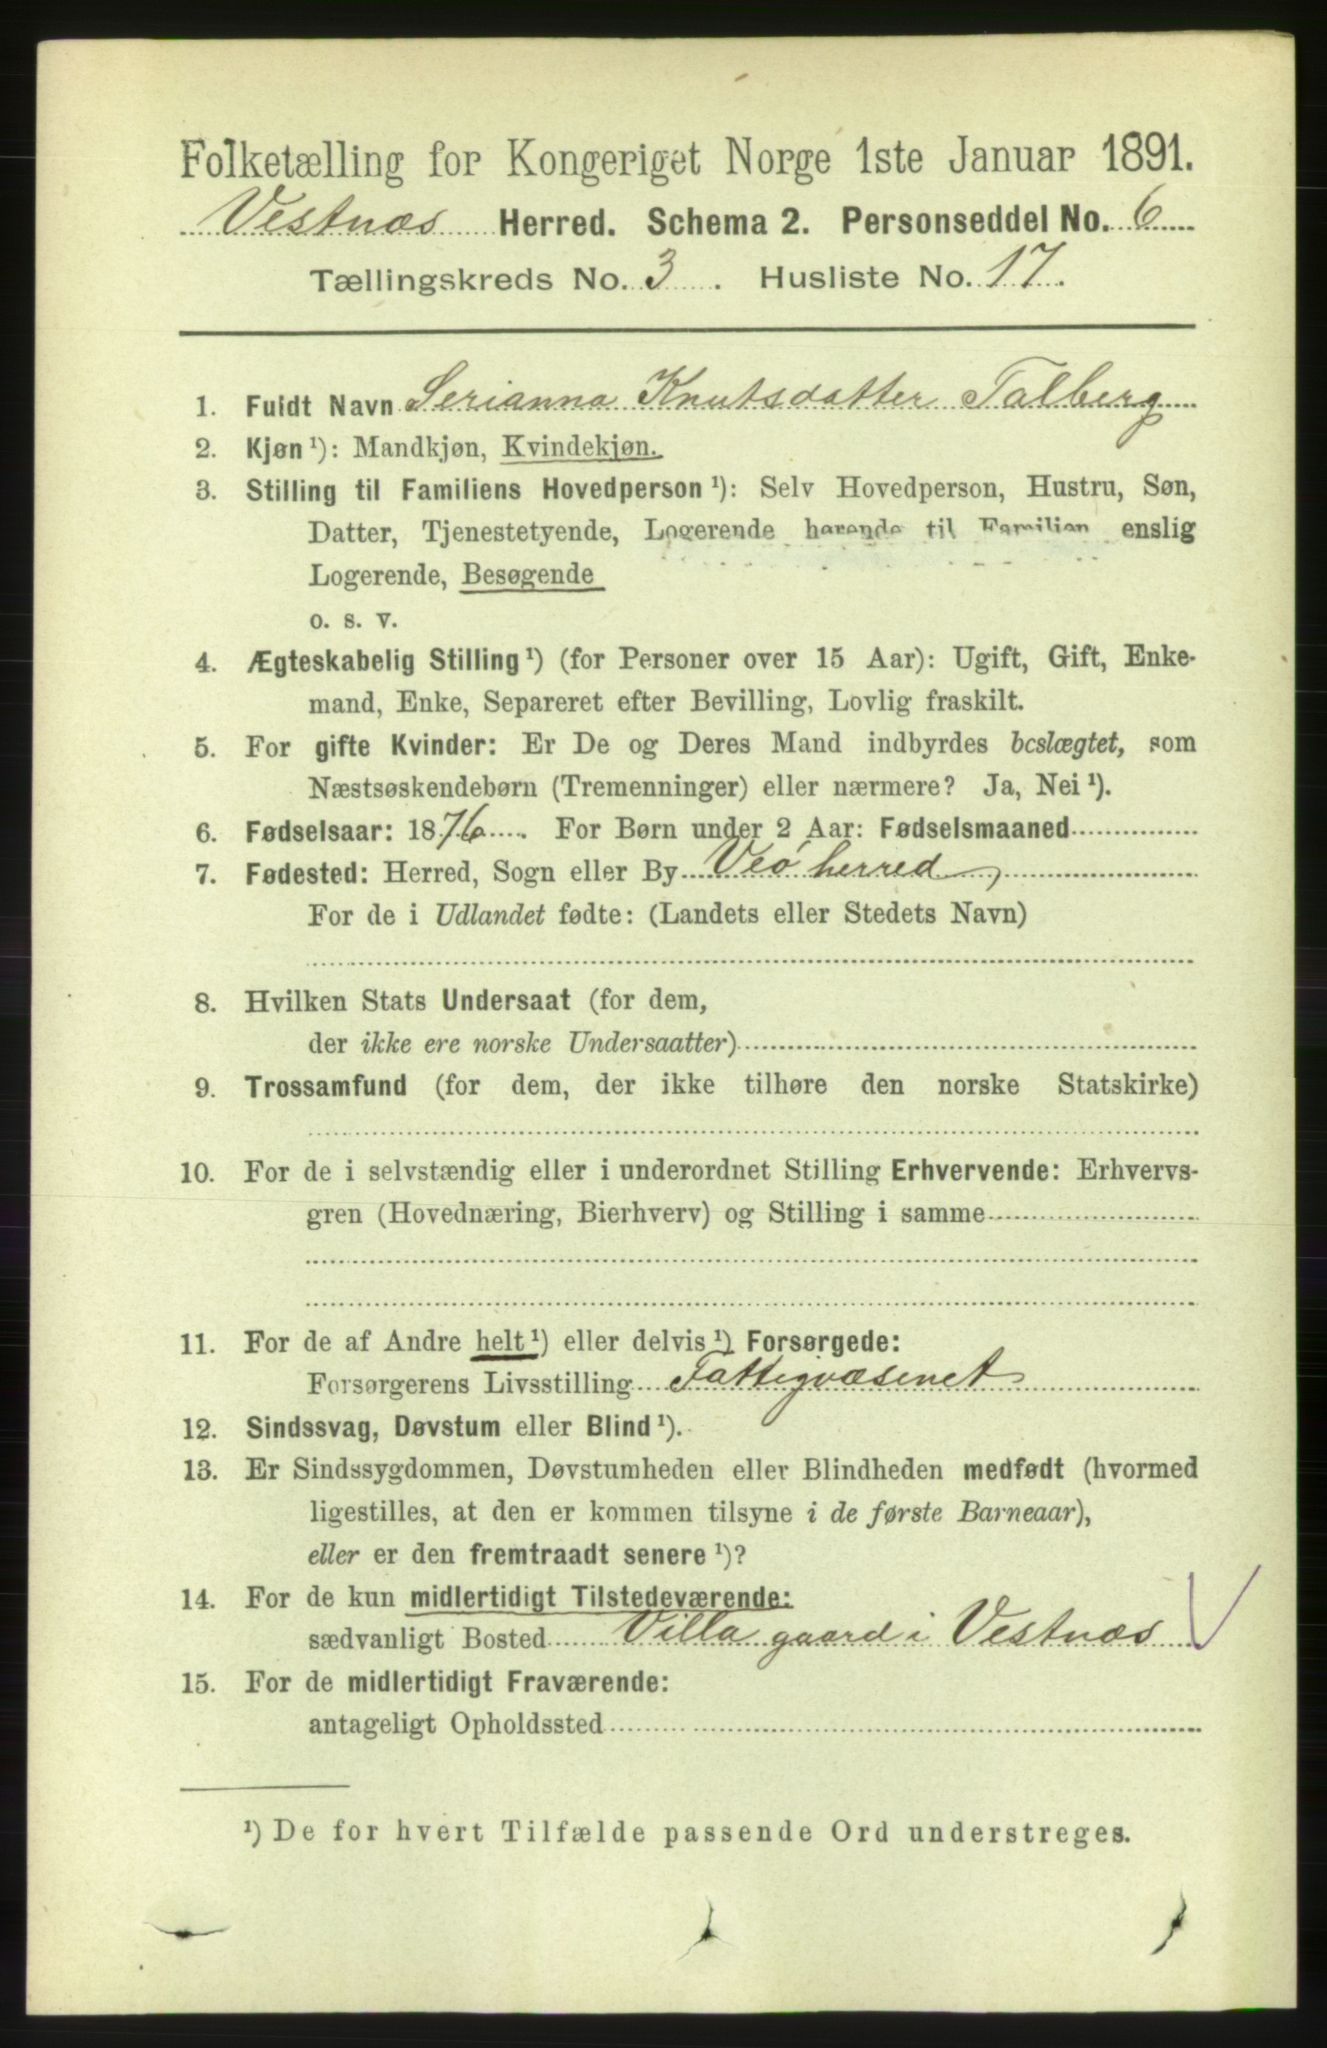 Folketælling for Kongeriget Norge 1ste Januar 1891.
Vestnæs Herred. Schema 2. Personseddel No. 6
Tællingskreds No. 3. Husliste No. 17.
1. Fuldt Navn Serianna Knutsdatter Talberg
2. Kjøn ¹): Mandkjøn, Kvindekjøn.
3. Stilling til Familiens Hovedperson ¹): Selv Hovedperson, Hustru, Søn,
Datter, Tjenestetyende, Logerende hørende til Familien, enslig
Logerende, Besøgende
o. s. v.
4. Ægteskabelig Stilling ¹) (for Personer over 15 Aar): Ugift, Gift, Enke-
mand, Enke, Separeret efter Bevilling, Lovlig fraskilt.
5. For gifte Kvinder: Er De og Deres Mand indbyrdes beslægtet, som
Næstsøskendebørn (Tremenninger) eller nærmere? Ja, Nei ¹).
6. Fødselsaar: 1876. For Børn under 2 Aar: Fødselsmaaned
7. Fødested: Herred, Sogn eller By Veø herred,
For de i Udlandet fødte: (Landets eller Stedets Navn)
8. Hvilken Stats Undersaat (for dem,
der ikke ere norske Undersaatter)
9. Trossamfund (for dem, der ikke tilhøre den norske Statskirke)
10. For de i selvstændig eller i underordnet Stilling Erhvervende: Erhvervs-
gren (Hovednæring, Bierhverv) og Stilling i samme
11. For de af Andre helt ¹) eller delvis ¹) Forsørgede:
Forsørgerens Livsstilling Fattigvæsenet
12. Sindssvag, Døvstum eller Blind ¹).
13. Er Sindssygdommen, Døvstumheden eller Blindheden medfødt (hvormed
ligestilles, at den er kommen tilsyne i de første Barneaar),
eller er den fremtraadt senere ¹)?
14. For de kun midlertidigt Tilstedeværende:
sædvanligt Bosted Villa gaard i Vestnæs
15. For de midlertidigt Fraværende:
antageligt Opholdssted
¹) De for hvert Tilfælde passende Ord understreges.